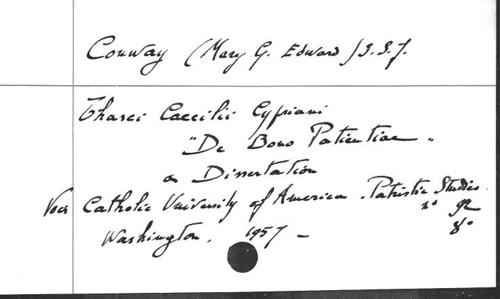 Conway (Mary G. Edward) S.S.J.
Thasci Caecilii Cypriani
"De Bono Patientiae"
a Dissertation
Voir Catholic University of America. Patristic Studies.
n° 92
Washington. 1957 - 8°